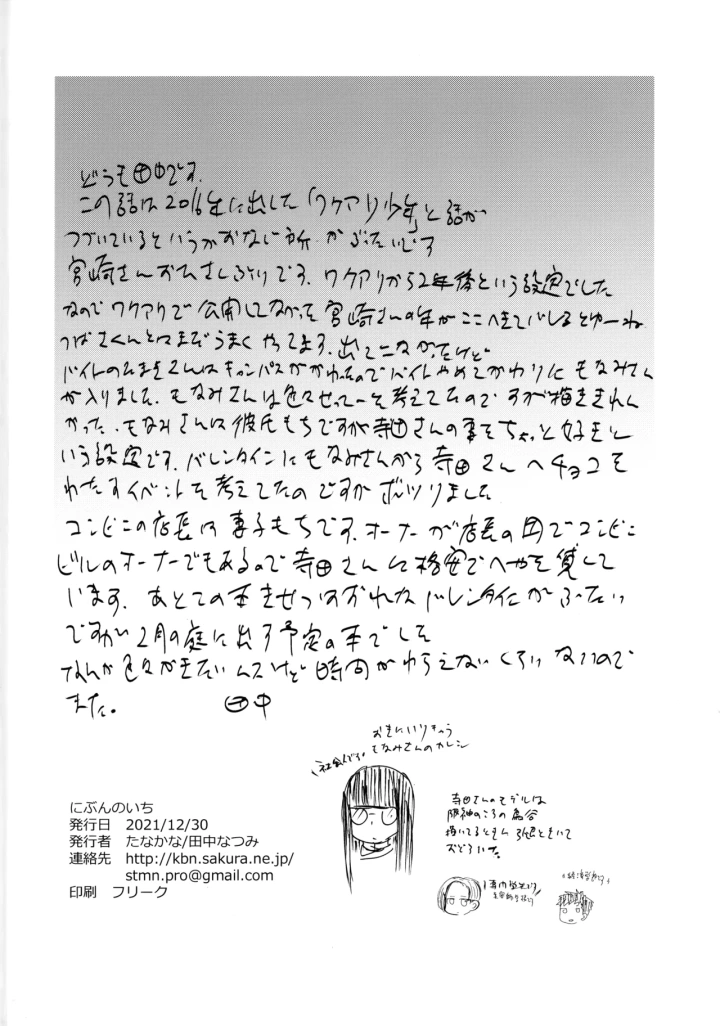 どうも田中です。
この話は2016年に出した「ワケアリ少年」と話が
つづいているというかおなじ所がぶたいです
宮崎さんおひさしぶりです。ワケアリから2年後という設定でした
なのでワケアリで公開してなかった宮崎さんの年がここへきてバレるとゆーね
つばさくんとはまだうまくやってます。出てこなかったけど
バイトのたまきさんはキャンパスがかわったのでバイトやめてかわりにもなみさん
が入りました。もなみさんは色々せってーを考えてたのですが描ききれん
かった。もなみさんは彼氏もちですが寺田さんの事をちょっと好きと
いう設定です。バレンタインにもなみさんから寺田さんへチョコを
わたすイベントを考えてたのですがボツりました
コンビニの店長は妻子もちです。オーナーが店長の兄でコンビニ
ビルのオーナーでもあるので寺田さんに格安でへやを貸して
います。あとこの本きせつはずれなバレンタインがぶたい
ですが2月の庭に出す予定の本でした
なんか色々かきたいんスけど時間がわらえないくらいないので
また。 田中
おきにいりきゃら
もなみさんのカレシ
社会人です
寺田さんのモデルは
阪神のころの鳥谷
描いてるとき 引退ときいて
おどろいた。
にぶんのいち
発行日 2021/12/30
発行者 たなかな/田中なつみ
連絡先 http://kbn.sakura.ne.jp/
stmn.pro@gmail.com
印刷 フリーク